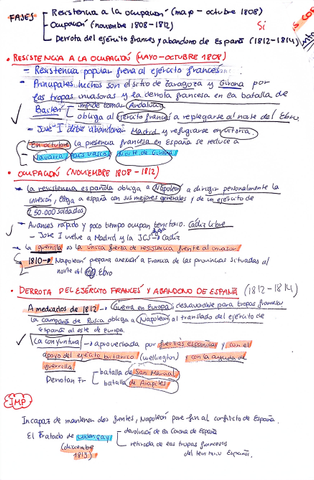 FASES
- Resistencia a la ocupación (mayo - octubre 1808)
- Ocupación (noviembre 1808-1812)
- Derrota del ejército francés y abandono de España (1812-1814)
Sí
• RESISTENCIA A LA OCUPACIÓN (MAYO-OCTUBRE 1808)
- Resistencia popular frena al ejército francés
- Principales hechos son el sitio de Zaragoza y Girona por
las tropas invasoras y la derrota francesa en la batalla de
Bailén
obliga al ejército francés a replegarse al norte del Ebro
- José I debe abandonar Madrid y refugiarse en
- En octubre la presencia francesa en España se reduce a
Navarra, País Vasco, norte de Girona
• OCUPACIÓN (NOVIEMBRE 1808 - 1812)
- La resistencia española obliga a Napoleón a dirigir personalmente la
invasión, llega a España con sus mejores generales y de un ejército de
250.000 soldados
- Avances rápido y poco tiempo ocupan territorio. Cádiz libre
- José I vuelve a Madrid y la JCS → Cádiz
- La guerrilla es la única fuerza de resistencia frente al invasor
- 1810 → Napoleón prepara anexión a Francia de las provincias situadas al
norte del Ebro
• DERROTA DEL EJÉRCITO FRANCÉS Y ABANDONO DE ESPAÑA (1812-1814)
- A mediados de 1812 → Guerra en Europa desfavorable para tropas francesas
La campaña de Rusia obliga a Napoleón al traslado del ejército de
España al este de Europa.
- La coyuntura → aprovechada por fuerzas españolas, con el
apoyo del ejército británico (Wellington) y con la ayuda de
guerrilla
Derrotan Fr
batalla de San Marcial
batalla de Arapiles
IMP
Incapaz de mantener dos frentes, Napoleón pone fin al conflicto de España.
El Tratado de Valençay
(diciembre
1813)
- devolución de la Corona de España
- retirada de las tropas francesas
del territorio España.